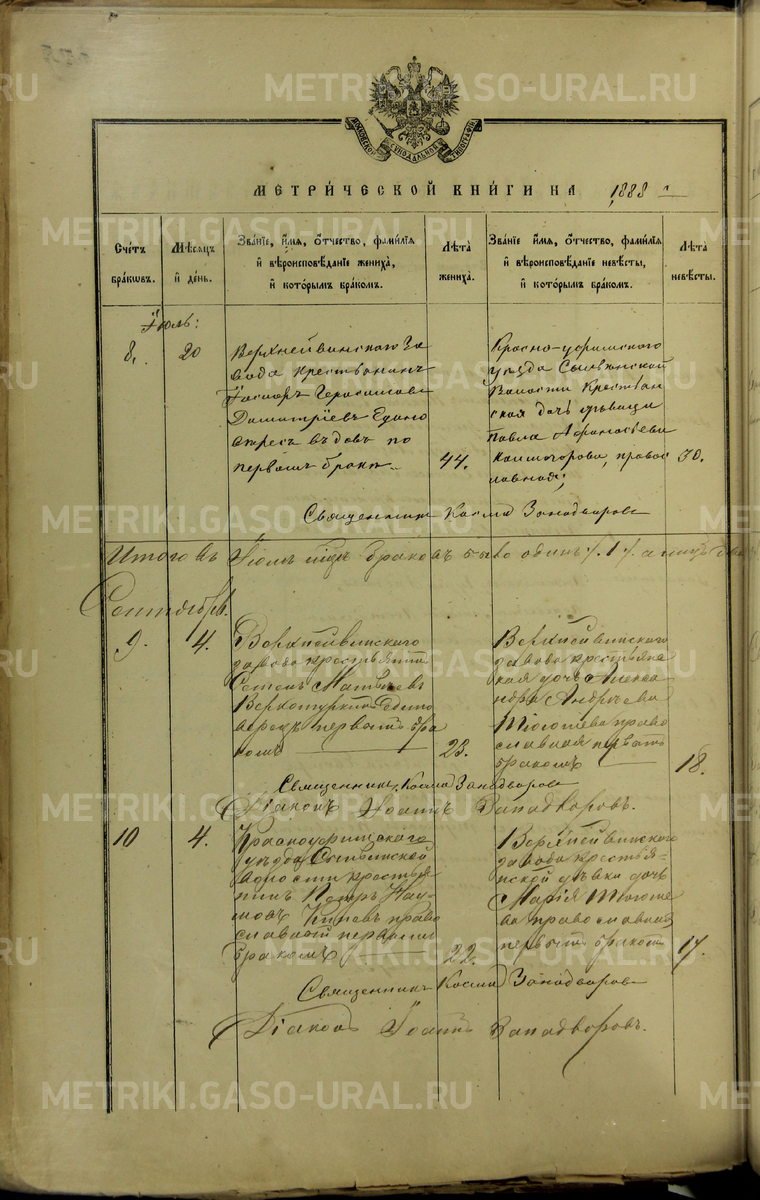 МОСКОВСКОЙ СУНОДАЛЬНОЙ ТИПОГРАФІИ
МЕТРИ́ЧЕСКОЙ КНИ́ГИ НА 1888
Сче́тъ бра́кѡвъ.
Мѣ́сяцъ и҆ де́нь.
Зва́нїе, и҆́мя, ѻ҆́тчество, фами́лїя и҆ вѣроисповѣ́данїе жениха̀, и҆ кото́рымъ бра́комъ.
Лѣ́та жениха̀.
Зва́нїе и҆́мя, ѻ҆́тчество, фами́лїя и҆ вѣроисповѣ́данїе невѣ́сты, и҆ кото́рымъ бра́комъ.
Лѣ́та невѣ́сты.
Іюль:
8.
20
Верхнейвинскаго За
вода крестьянинъ
Герасимовъ
Димитріевъ Едино
вѣрецъ вдовъ по
первомъ бракѣ
44.
Красно-уфимскаго
уѣзда Сылвинской
Волости Крестьян
ская дочь дѣвица
Павла Афанасьева
правос
лавная;
30.
Священникъ Косма Западворовъ
Итого въ Іюлѣ браковъ было одинъ /.1./
Сентябрь.
9.
4.
Верхнейвинскаго
завода крестьянинъ
Семенъ Матвѣевъ
Едино
вѣрецъ первымъ бра
комъ
23.
Верхнейвинскаго
завода крестьян
ская дочь Алекса
ндра Андреева
право
славная первымъ
бракомъ
18.
Священникъ Косма Западворовъ
Діаконъ Іоаннъ Западворовъ.
10
4.
Красноуфимскаго
уѣзда Сылвинской
волости крестья
нинъ Петръ Нау
мовъ право
славный первымъ
бракомъ
22.
Верхнейвинскаго
завода крестья
нской дѣвки дочь
Марія
ва православная
первымъ бракомъ
17.
Священникъ Косма Западворовъ
Діаконъ Іоаннъ Западворовъ.
METRIKI.GASO-URAL.RU